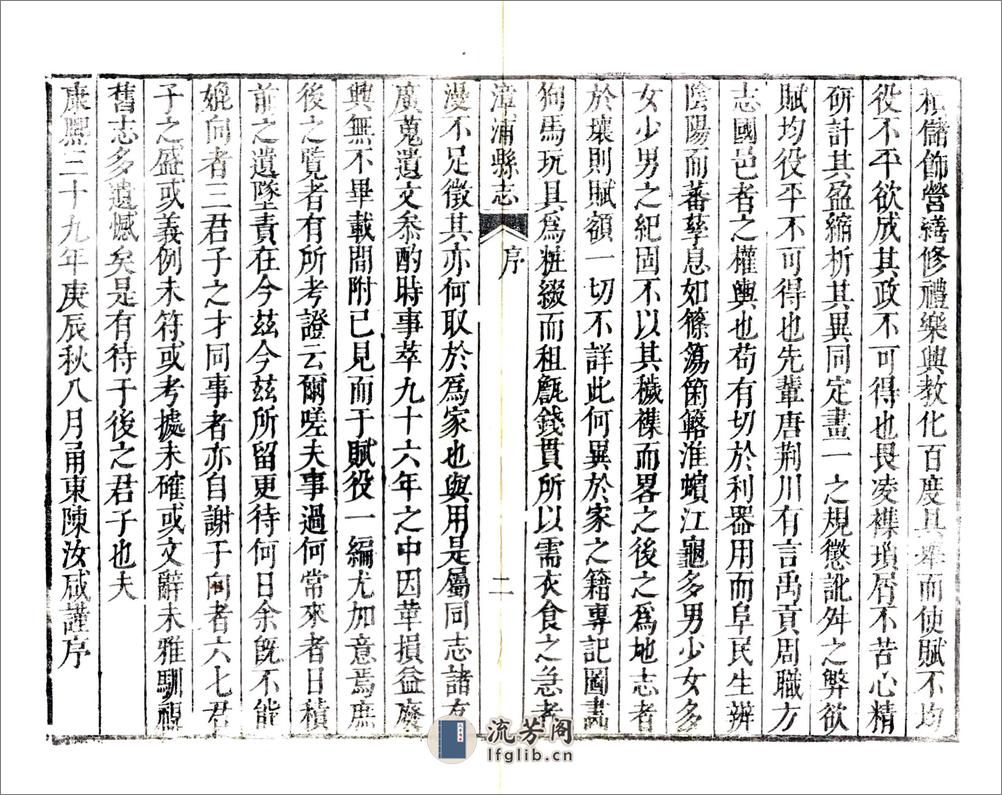 積儲飾營繕修禮樂興教化百度具舉而使賦不均
役不平欲成其政不可得也畏凌襍瑣屑不苦心精
研計其盈縮析其異同定畫一之規懲訛舛之弊欲
賦均役平不可得也先輩唐荆川有言禹貢周職方
志國邑者之權輿也苟有切於利器用而阜民生辨
陰陽而蕃孳息如篠簜箘簵淮蠙江龜多男少女多
女少男之紀固不以其穢襍而畧之後之爲地志者
於壤則賦額一切不詳此何異於家之籍專記圖畵
狗馬玩具爲粧綴而租甔錢貫所以需衣食之急者
漳浦縣志 序 二
漫不足徵其亦何取於爲家也與用是屬同志諸友
廣蒐遺文叅酌時事萃九十六年之中因革損益廢
興無不畢載間附已見而于賦役一編尤加意焉庶
後之覽者有所考證云爾嗟夫事過何常來者日積
前之遺墜責在今茲今茲所留更待何日余旣不能
媲向者三君子之才同事者亦自謝于向者六七君
子之盛或義例未符或考據未確或文辭未雅馴視
舊志多遺憾矣是有待于後之君子也夫
康熙三十九年庚辰秋八月甬東陳汝咸謹序
流芳阁
lfglib.cn